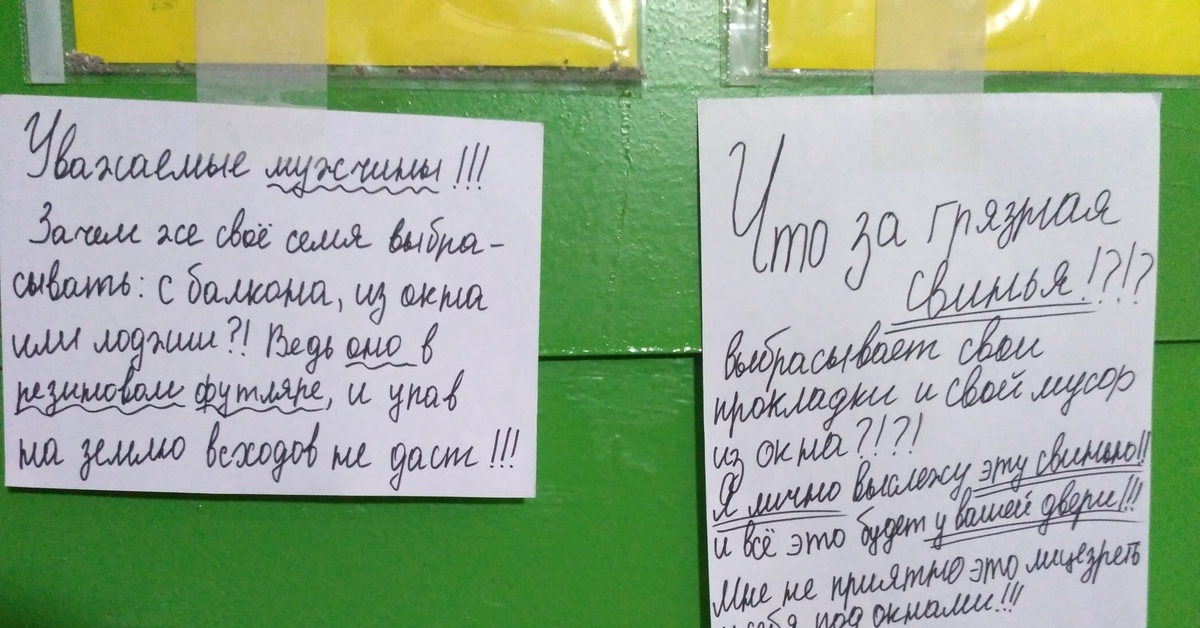 Уважаемые мужчины!!!
Зачем же своё семя выбра-
сывать: с балкона, из окна
или лоджии?! Ведь оно в
резиновом футляре, и упав
на землю всходов не даст!!!
Что за грязная
свинья!?!?
Выбрасывает свои
прокладки и свой мусор
из окна?!?!
Я лично выслежу эту свинью!!
и всё это будет у вашей двери!!!
Мне не приятно это лицезреть
у себя под окнами!!!